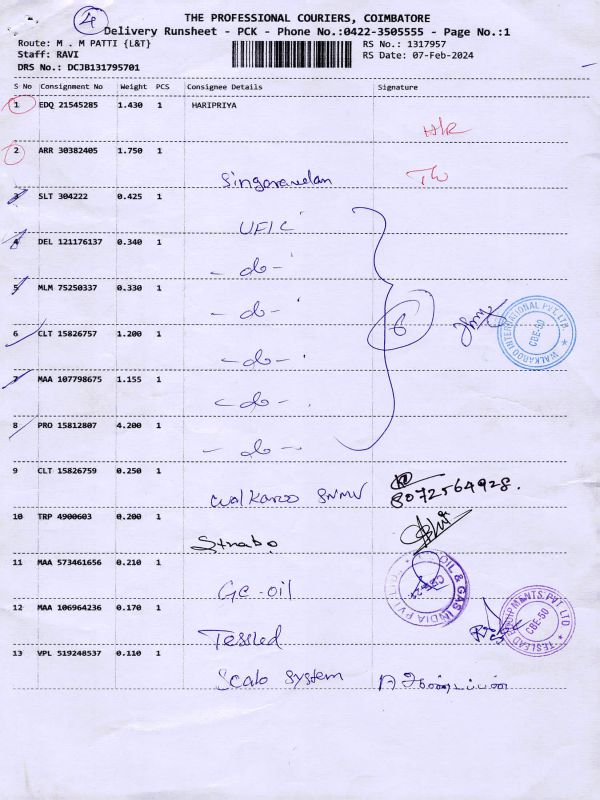 4
THE PROFESSIONAL COURIERS, COIMBATORE
Delivery Runsheet - PCK - Phone No.:0422-3505555 - Page No.:1
Route: M . M PATTI {L&T} RS No.: 1317957
Staff: RAVI RS Date: 07-Feb-2024
DRS No.: DCJB131795701
S No Consignment No Weight PCS Consignee Details Signature
1 EDQ 21545285 1.430 1 HARIPRIYA
H/R
2 ARR 30382405 1.750 1
Singaravelan
3 SLT 304222 0.425 1
4 DEL 121176137 0.340 1
- do -
5 MLM 75250337 0.330 1
- do -
6 CLT 15826757 1.200 1
- do -
6
WALKAROO INTERNATIONAL PVT. LTD. CBE-50
7 MAA 107798675 1.155 1
- do -
8 PRO 15812807 4.200 1
- do -
9 CLT 15826759 0.250 1
Walkaroo SNMV 8072564928.
10 TRP 4900603 0.200 1
11 MAA 573461656 0.210 1
Gc-oil
OIL & GAS INDIA PVT LTD.
12 MAA 106964236 0.170 1
Tessled
TESLEAD EQUIPMENTS PVT LTD CBE-50
13 VPL 519248537 0.110 1
Scalo System